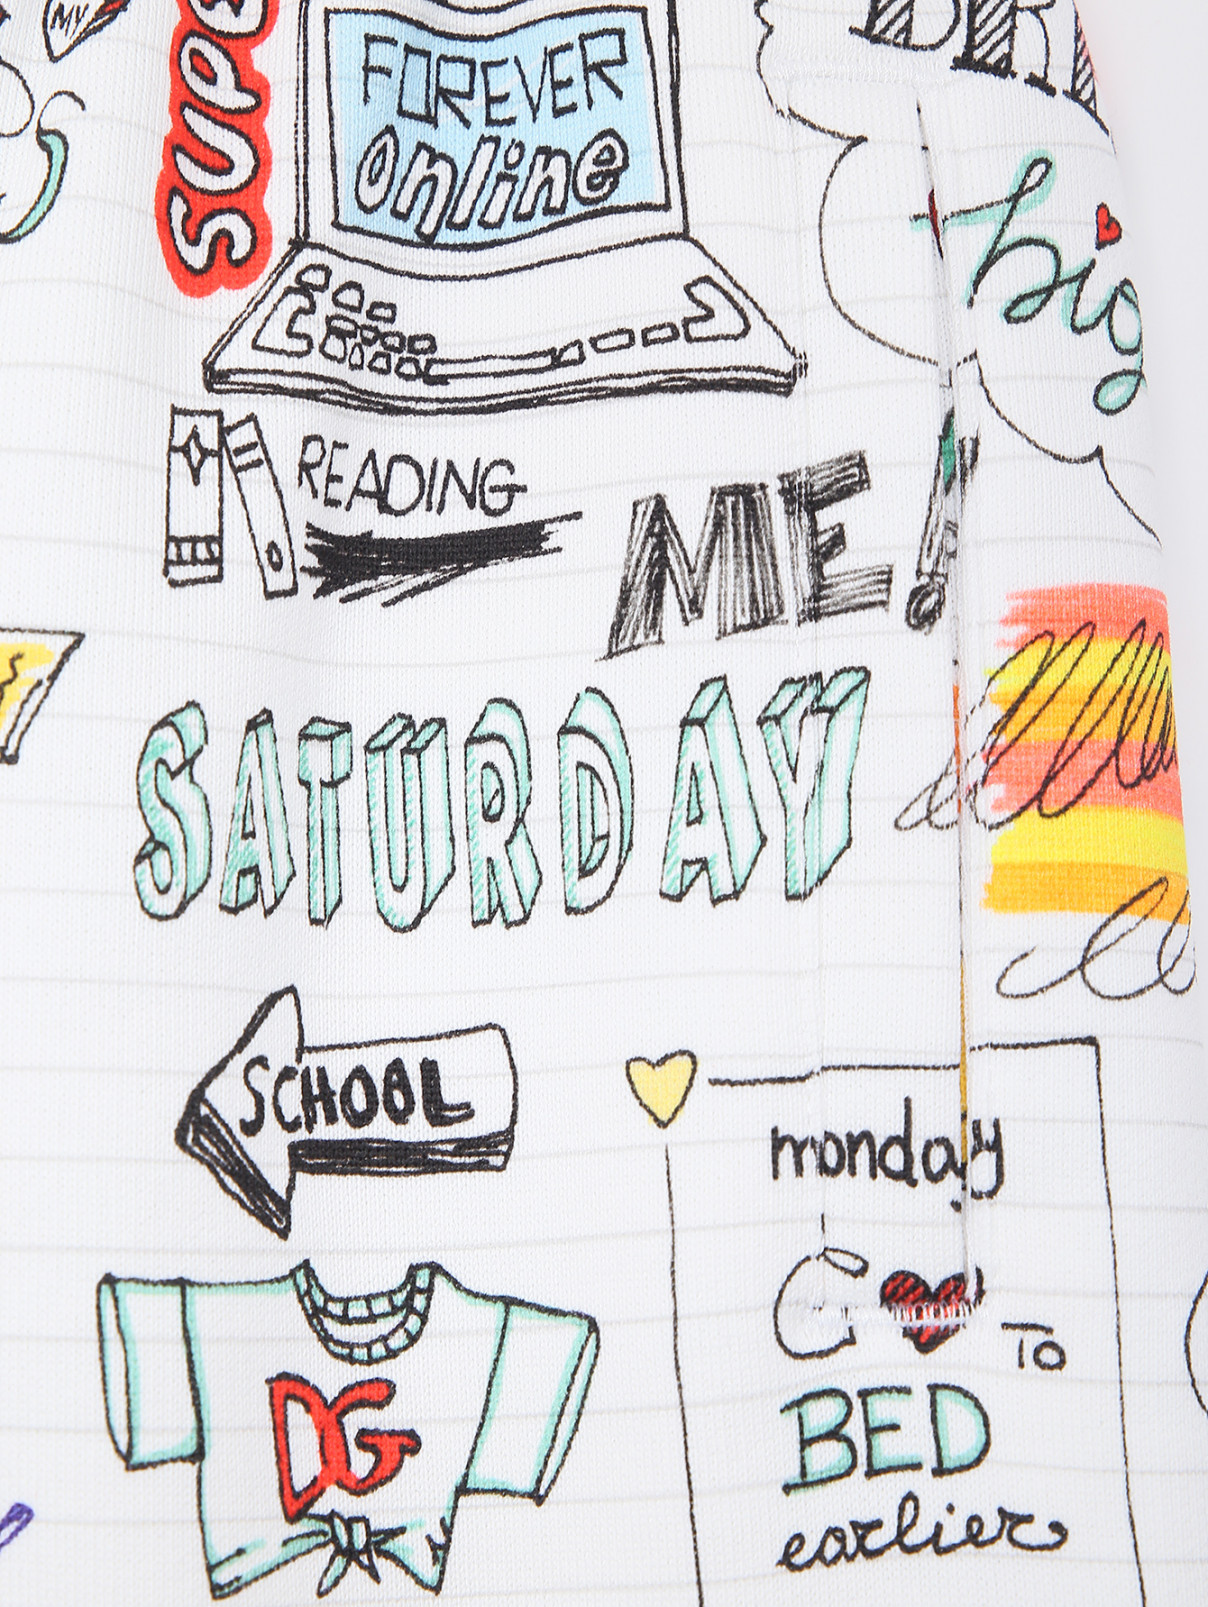 MY
FOREVER
online
big
READING
ME!
SATURDAY
SCHOOL
monday
GO TO
BED
earlier
DG